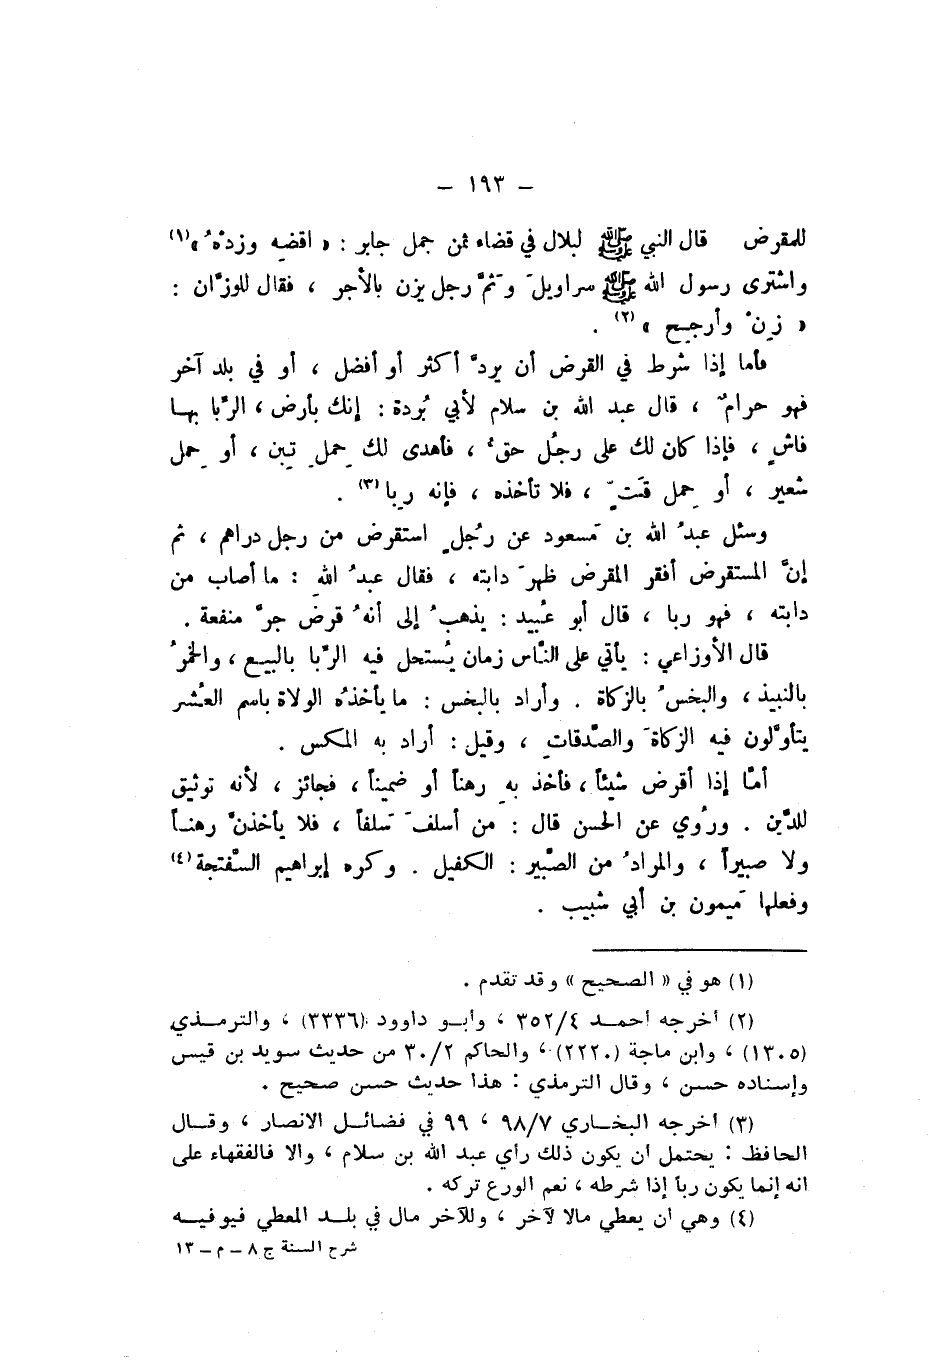 – ١٩٣ –
للمقرض قال النبي ﷺ لبلال في قضاء ثمن جمل جابر : « اقضِه وزدْهُ »(١)
واشترى رسول الله ﷺ سراويلَ وَثمَّ رجل يزن بالأجر ، فقال للوزَّان :
« زِنْ وأرجِح » (٢) .
فأما إذا شرط في القرض أن يردَّ أكثر أو أفضل ، أو في بلد آخر
فهو حرامٌ ، قال عبد الله بن سلام لأبي بُردة : إنك بأرض ، الرِّبا بها
فاشٍ ، فإذا كان لك على رجُل حقٌ ، فأهدى لك حِمل تِبن ، أو حِمل
شعير ، أو حِمل قَتٍّ ، فلا تأخذه ، فإنه رِبا (٣) .
وسئل عبدُ الله بن مَسعود عن رجُلٍ استقرض من رجل دراهم ، ثم
إنَّ المستقرض أفقر المقرض ظهرَ دابته ، فقال عبدُ اللهِ : ما أصاب من
دابته ، فهو ربا ، قال أبو عُبيد : يذهبُ إلى أنهُ قرضٌ جرَّ منفعة .
قال الأوزاعي : يأتي على النَّاس زمان يُستحل فيه الرِّبا بالبيع ، والخمرُ
بالنبيذ ، والبخسُ بالزكاة . وأراد بالبخس : ما يأخذُه الولاة باسم العُشر
يتأوَّلون فيه الزكاةَ والصَّدقاتِ ، وقيل : أراد به المكس .
أمَّا إذا أقرض شيئاً ، فأخذ بهِ رهناً أو ضميناً ، فجائز ، لأنه توثيق
للدَّين . ورُوي عن الحسن قال : من أسلفَ سَلفاً ، فلا يأخذنَّ رهنـاً
ولا صبيراً ، والمرادُ من الصَّبير : الكفيل . وكره إبراهيم السَّفتجة (٤)
وفعلها مَيمون بن أبي شبيب .
(١) هو في « الصحيح » وقد تقدم .
(٢) أخرجه أحمـد ٣٥٢/٤ ، وأبـو داوود (٣٣٣٦) ، والترمـذي
(١٣٠٥) ، وابن ماجة (٢٢٢٠) ، والحاكم ٣٠/٢ من حديث سويد بن قيس
وإسناده حسن ، وقال الترمذي : هذا حديث حسن صحيح .
(٣) أخرجه البخـاري ٩٨/٧ ، ٩٩ في فضائـل الانصار ، وقـال
الحافظ : يحتمل أن يكون ذلك رأي عبد الله بن سلام ، والا فالفقهاء على
انه إنما يكون رباً إذا شرطه ، نعم الورع تركه .
(٤) وهي ان يعطي مالا لآخر ، وللآخر مال في بلـد المعطي فيوفيـه
شرح السنة ج ٨ – م – ١٣